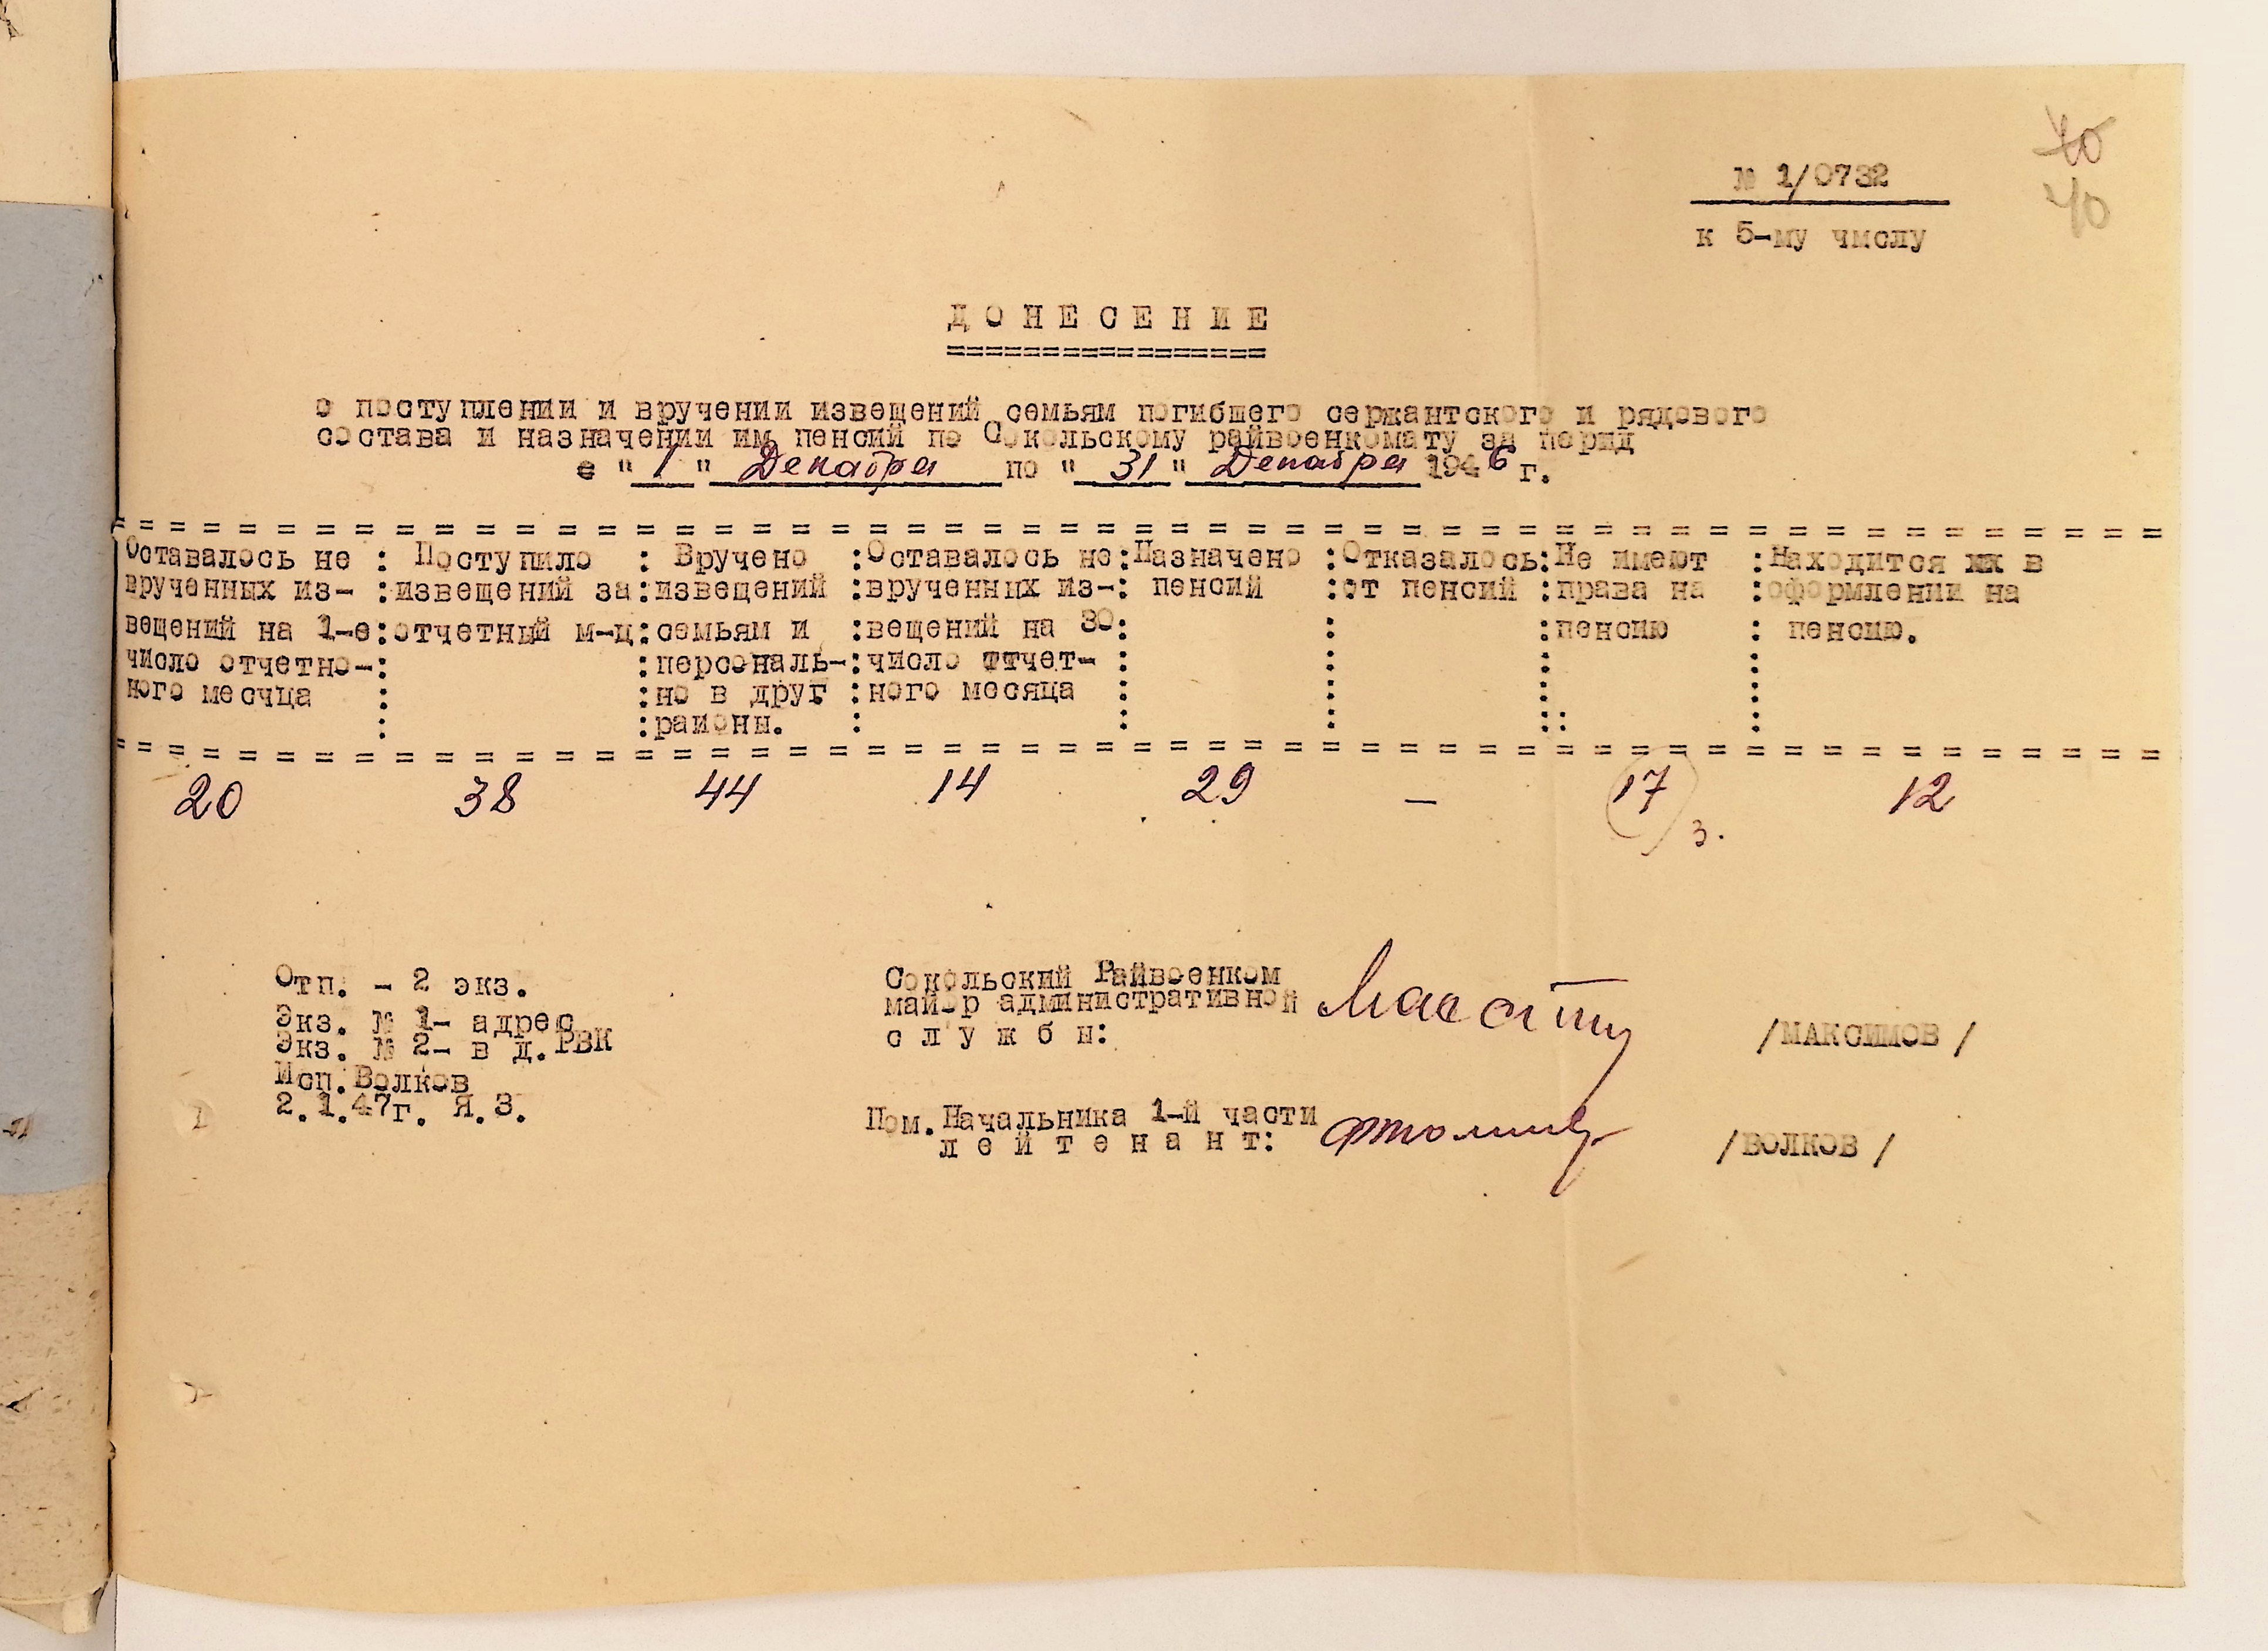 40
40
№ 1/0732
к 5-му чмслу
ДОНЕСЕНИЕ
=================
о поступлении и вручении извещений семьям погибшего сержантского и рядового
состава и назначении им пенсий по Сокольскому райвоенкомату за перид
с " 1 " Декабря по " 31 " Декабря 1946 г.
Оставалось не : Поступило : Вручено :Оставалось не:Назначено :Отказалось:Не имеют :Находится хх в
врученных из- :извещений за:извещений :врученных из-: пенсий :от пенсий :права на :оформлении на
вещений на 1-е:отчетный м-ц:семьям и :вещений на 30: : :пенсию : пенсию.
число отчетно-: :персональ-:число ттчет- : : : :
ного месчца : :но в друг :ного месяца : : : :
: :районы. : : : :: :
20 38 44 14 29 — 17 12
3.
Отп. - 2 экз.
Экз. № 1- адрес
Экз. № 2- в д.РВК
Исп.Волков
2.1.47г. Я.З.
Сокольский Райвоенком
майор административной
службы:
/МАКСИМОВ /
Пом.Начальника 1-й части
лейтенант:
/ВОЛКОВ /